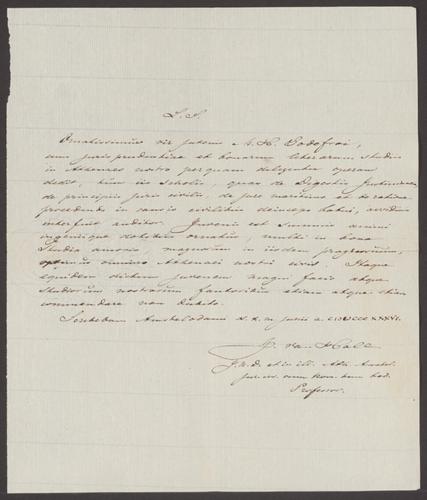 L. S.
Ornatissimus vir juvenis M. H. Godefroi,
cum jurisprudentiae et bonarum literarum studiis
in Athenaeo nostro per quam diligenter operam
dedit, tum in scholis, quas de Digestis Justinianeis
de principiis juris civilis, de jure maritimo et de ratione
procedendi in causis civilibus deinceps habui, assiduus
interfuit auditor. Juvenis est summis animi
ingeniique dotibus ornatus, multi in bona
studia amoris, magnorum in iisdem progressuum,
optimus omnino Athenaei nostri civis. Itaque
equidem dictum juvenem magni facio atque
studiorum nostrorum fautoribus etiam atque etiam
commendare non dubito.
Scribebam Amstelodami d. X. m. Junii a. CIƆIƆCCCXXXVI.
J. van Hall
J. U. D. et in ill. Ath. Amstel.
jur. civ. rom. hod.
Professor.